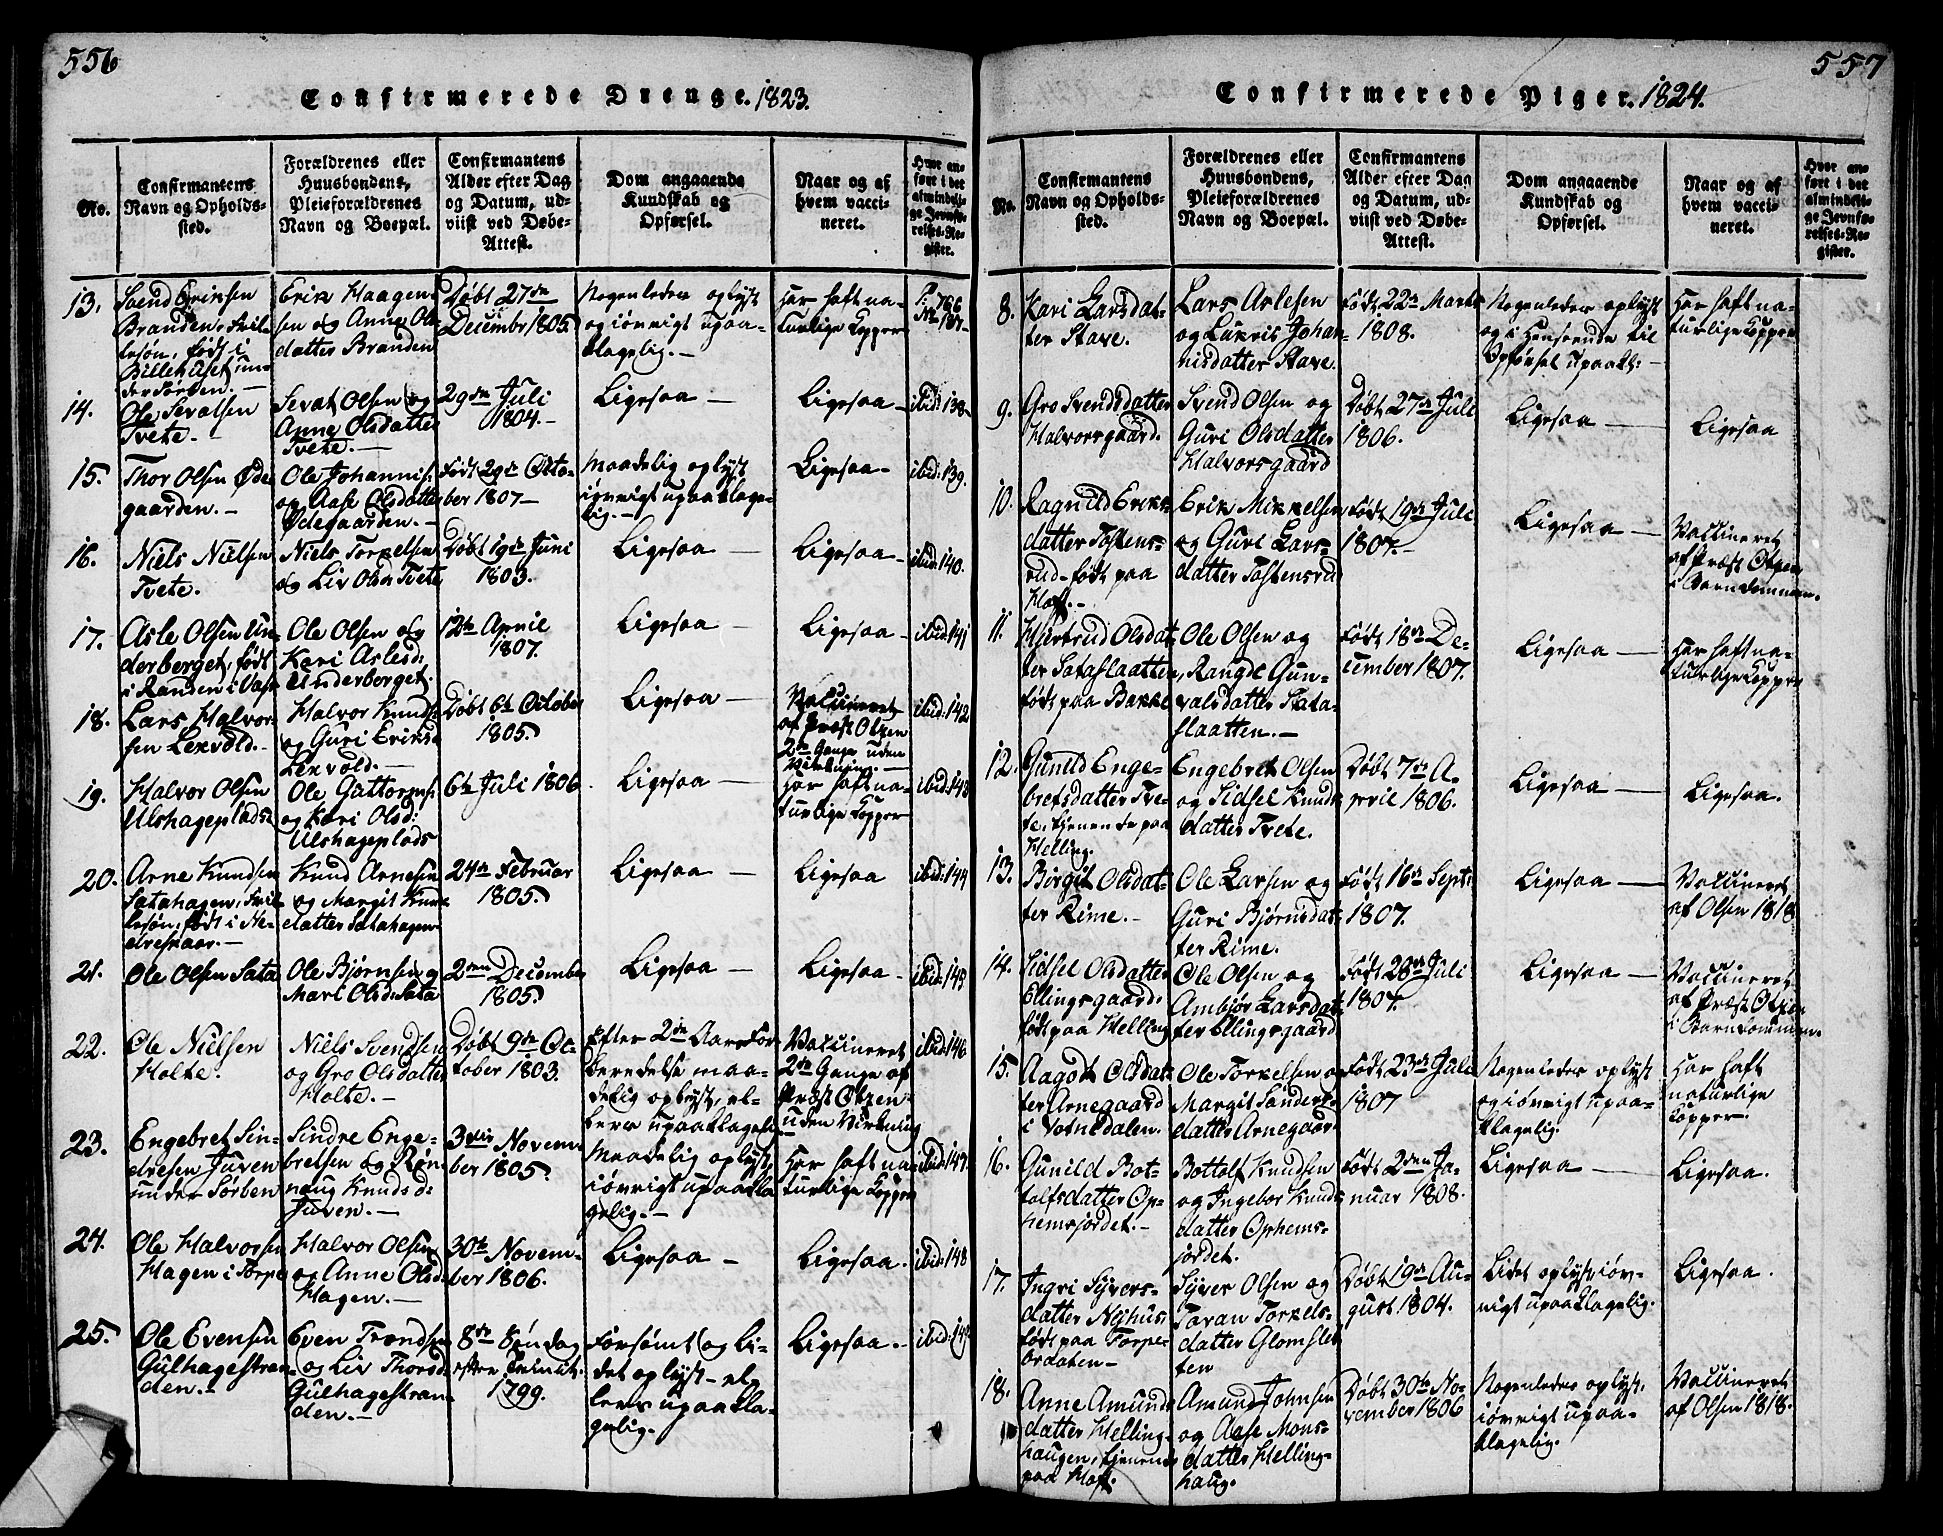 556
Confirmerede Drenge. 1823.
No.
Confirmantens
Navn og Opholds-
sted.
Forældrenes eller
Huusbondens,
Pleieforældrenes
Navn og Boepæl.
Confirmantens
Alder efter Dag
og Datum, ud-
viist ved Døbe-
Attest.
Dom angaaende
Kundskab og
Opførsel.
Naar og af
hvem vacci-
neret.
Hvor an-
ført i det
almindeli-
ge Jevnfø-
relses-Re-
gister.
13.
Svend Eriksen
Branden,
tesøn, født i
Erik Haagen-
sen og Anne Ols-
datter Branden
Døbt 27de
Decembr 1805.
Nogenledes oplyst
og iøvrigt upaa-
klagelig.-
Har haft na-
turlige Kopper
P: 766
No 137-
14.
Ole Sevatsen
Tvete.-
Sevat Olsen og
Anne Olsdatter
Tvete.-
29de Juli
1804.-
Ligesaa -
Ligesaa -
ibid: 138-
15.
Thor Olsen Øde
gaarden.-
Ole Johannis:
og Aase Olsdatter
Ødegaarden.-
Født 29de Octo-
ber 1807-
Maadelig oplyst
iøvrigt upaaklage-
lig.-
Ligesaa -
ibid: 139.
16.
Niels Nielsen
Tvete.
Niels Torkelsen
og Liv Olsd Tvete
Døbt 19de Juni
1803.
Ligesaa -
Ligesaa -
ibid: 140.
17.
Asle Olsen Un-
derberget, født
i Randen i
Ole Olsen og
Kari Aslesd:
Underberget.
12te April
1807.
Ligesaa -
Ligesaa -
ibid: 141
18.
Lars Halvor-
sen Lekvold.-
Halvor Knuds:
og Guri Eriksd
Lekvold.-
Døbt 6te October
1805.
Ligesaa -
Vaccineret
af Præst Otzen
2de Gange uden
Virkning.-
ibid: 142
19.
Halvor Olsen
Ulshagepladsen
Ole Guttorms:
og Kari Olsd:
Ulshageplads
6te Juli 1806.
Ligesaa -
Har haft na-
turlige Kopper
ibid: 143
20.
Arne Knudsen
Satahagen,
tesøn, født i Ne-
dreskaar.-
Knud Arnesen
og Margit Knuds
datter Satahagen
24de Februar
1805.
Ligesaa -
Ligesaa
ibid: 144
21.
Ole Olsen Sata
Ole Bjørnsen og
Mari Olsd: Sata
2den December
1805.
Ligesaa -
Ligesaa -
ibid: 145
22.
Ole Nielsen
Holte.
Niels Svendsen
og Gro Olsdatter
Holte.-
Døbt 9de Oc-
tober 1803.
Efter 2de Aars For-
beredelse maa-
delig oplyst, el-
lers upaaklagelig
Vaccineret
2de Gange af
Præst Otzen
uden Virkning
ibid: 146
23.
Engebret Sin-
dresen Juven
under Sørben
Sindre Enge-
bretsen og Røn-
naug Knudsd:
Juven.-
3die Novem-
ber 1805.
Maadelig oplyst
iøvrigt upaakla
gelig.-
Har haft na-
turlige Kopper
ibid: 147
24.
Ole Halvorsen
Hagen i Torpe
Halvor Olsen
og Anne Olsd:
Hagen.-
30te Novem-
ber 1806.
Ligesaa -
Ligesaa.
ibid: 148
25.
Ole Evensen
Gulhagestran-
den.-
Even Trondsen
og Liv Thorsd
Gulhagestran-
den.-
8de Søndag
efter Trinit:
1799.
Forsømt og li-
det oplyst - el-
lers upaakla-
gelig.-
Ligesaa.-
ibid: 149
557
Confirmerede Piger. 1824.
No.
Confirmantens
Navn og Opholds-
sted.
Forældrenes eller
Huusbondens,
Pleieforældrenes
Navn og Boepæl.
Confirmantens
Alder efter Dag
og Datum, ud-
viist ved Døbe-
Attest.
Dom angaaende
Kundskab og
Opførsel.
Naar og af
hvem vacci-
neret.
Hvor an-
ført i det
almindeli-
ge Jevnfø-
relses-Re-
gister.
8.
Kari Larsdat-
ter Stave.
Lars Aslesen
og Lukris Johan-
nisdatter Stave.
Født 22de Marts
1808.
Nogenledes oplyst
og i Henseende til
Opførsel upaakl:-
Har haft na-
turlige Kopper
9.
Gro Svendsdatter
Halvorsgaard.
Svend Olsen og
Guri Olsdatter
Halvorsgaard
Døbt 27de Juli
1806.
Ligesaa -
Ligesaa
10.
Ragnild Eriks-
datter Tostens-
rud - født paa
Hoft.-
Erik Mikkelsen
og Guri Lars-
datter Tostensrud
Født 19de Juli
1807.-
Ligesaa -
Vaccineret
af Præst Otzen
i Barndommen.
11.
Hjertrud Olsdat-
ter Sataslaatten,
født paa Bakke
Ole Olsen og
Rangdi Gun-
valsdatter Sata-
slaatten.-
Født 18de De-
cember 1807.
Ligesaa -
Har haft na-
turlige Kopper
12.
Gunild Enge-
bretsdatter Tve-
te, tjenende paa
Helling.
Engebret Olsen
og Sidsel Knuds
datter Tvete.
Døbt 7de A-
pril 1806.
Ligesaa -
Ligesaa.
13.
Birgit Olsdat-
ter Rime.-
Ole Larsen og
Guri Bjørnsdat-
ter Rime.
Født 16de Sept:
1807.
Ligesaa -
Vaccineret
af Olsen 1818
14.
Sidsel Olsdatter
Ellingsgaard.
født paa Helling
Ole Olsen og
Ambjør Larsdat-
ter Ellingsgaard
Født 28de Juli
1807.
Ligesaa -
Vaccineret
af Præst Otzen
i Barndommen.
15.
Aagot Olsdat-
ter Arnegaard
i Votnedalen.
Ole Torkelsen og
Margit Sanders-
datter Arnegaar.
Født 23de Juli
1807
Nogenledes oplyst
og iøvrigt upaa-
klagelig.
Har haft
naturlige
Kopper.
16.
Gunild Bot-
tolfsdatter Op-
hemsjordet.-
Bottolf Knudsen
og Ingebor Knuds
datter Ophems-
jordet.
Født 2den Ja-
nuar 1808.
Ligesaa -
Ligesaa.
17.
Ingri Syvers-
datter Nyhus,
født paa Torpe-
braaten -
Syver Olsen og
Taran Torkels-
datter Glomslet-
ten
Døbt 19de Au-
gust 1804.
Lidet oplyst, iøv-
rigt upaaklagelig.
Ligesaa.
18.
Anne Amunds
datter Helling-
haugen, tjenende
paa Hoft.
Amund Johnsen
og Aase Mons-
datter Helling-
haug.
Døbt 30te No-
vember 1806
Nogenledes oplyst,
iøvrigt upaa-
klagelig.
Vaccineret
af Olsen 1818.